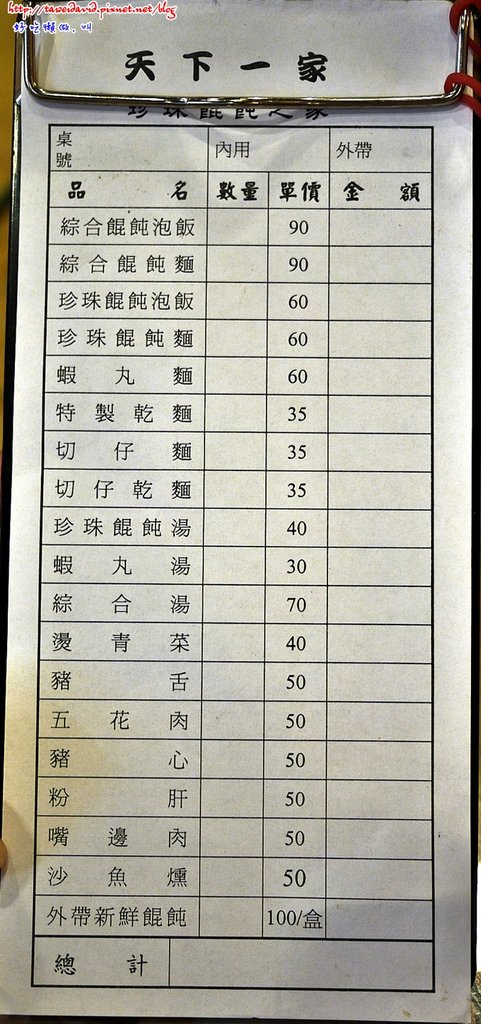 http://taweidavid.pixnet.net/blog
好吃懶做.叫
天下一家
珍珠餛飩之家
桌號 內用 外帶
品名 數量 單價 金額
綜合餛飩泡飯 90
綜合餛飩麵 90
珍珠餛飩泡飯 60
珍珠餛飩麵 60
蝦丸麵 60
特製乾麵 35
切仔麵 35
切仔乾麵 35
珍珠餛飩湯 40
蝦丸湯 30
綜合湯 70
燙青菜 40
豬舌 50
五花肉 50
豬心 50
粉肝 50
嘴邊肉 50
沙魚燻 50
外帶新鮮餛飩 100/盒
總計